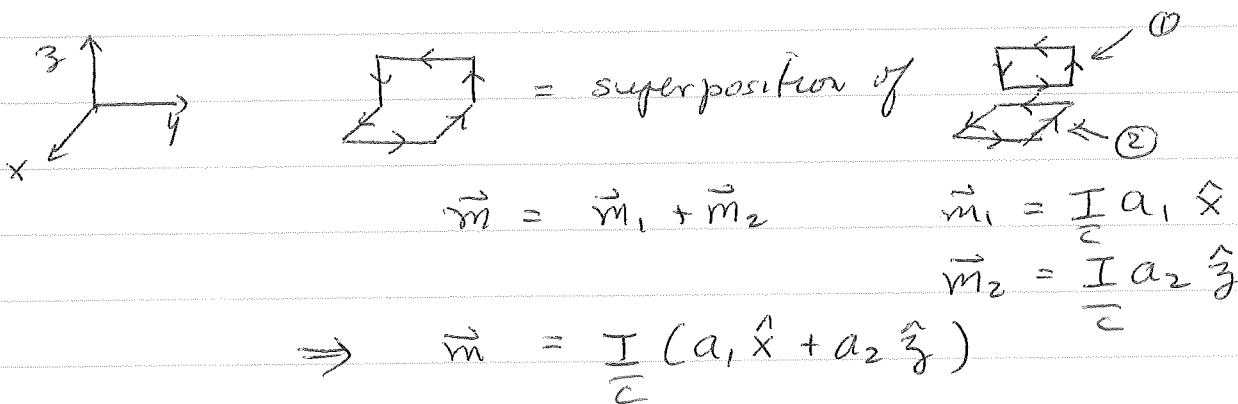 z
y
x
= superposition of
①
②
m⃗ = m⃗₁ + m⃗₂
m⃗₁ = I/c a₁ x̂
m⃗₂ = I/c a₂ ẑ
⇒ m⃗ = I/c (a₁ x̂ + a₂ ẑ)